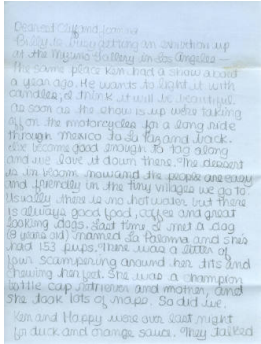 Dearest Clyf and Joan
Billy is busy getting an exhibition up
at the Mizuno Gallery in Los Angeles —
the same place Ken had a show about
a year ago. He wants to light it with
candles, I think it will be beautiful.
As soon as the show is up we're taking
off on the motorcycles for a long ride
through Mexico to La Paz and back.
I've become good enough to tag along
and we love it down there. The desert
is in bloom now and the people are easy
and friendly in the tiny villages we go to.
Usually there is no hot water but there
is always good food, coffee and great
looking dogs. Last time I met a dog
(9 years old) named La Paloma and she's
had 153 pups. There was a litter of
four scampering around her tits and
chewing her feet. She was a champion
bottle cap retriever and mother, and
she took lots of naps. So did we.
Ken and Happy were over last night
for duck and orange sauce. They talked